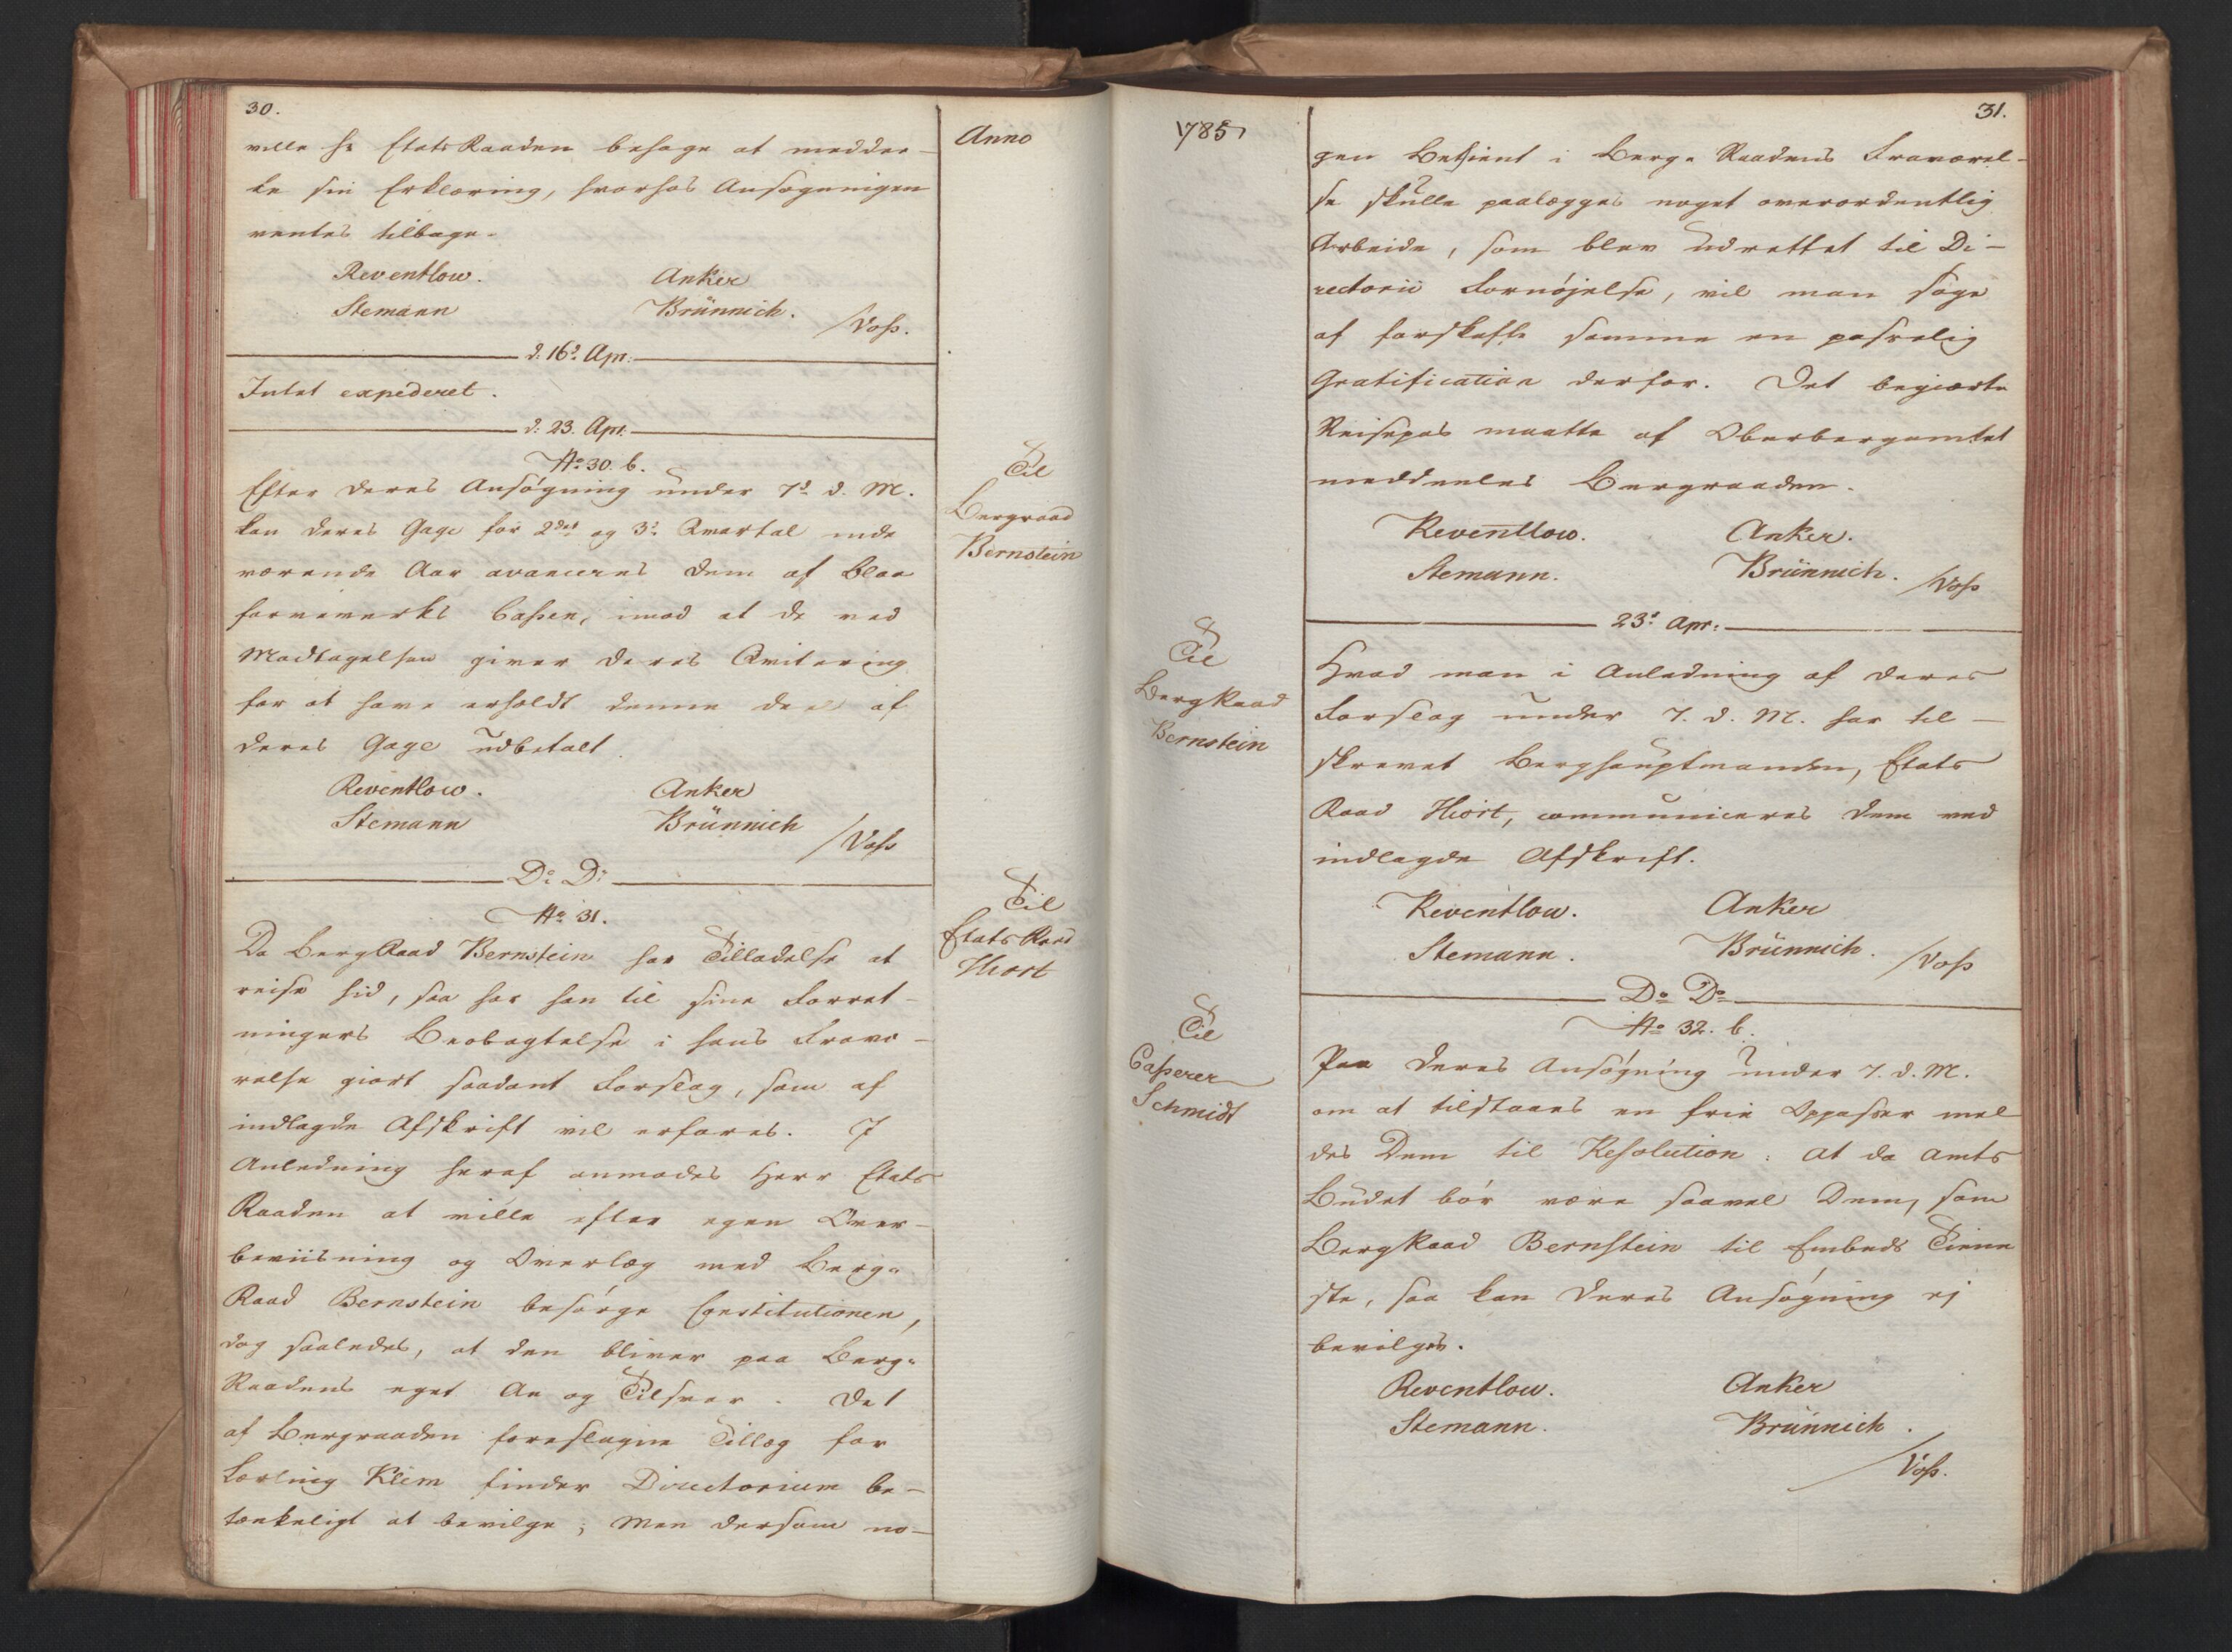 30.
Anno
ville hr EtatsRaaden behage at meddee-
le sin Erklæring, hvorhos Ansøgningen
ventes tilbage.
Reventlow. Anker
Stemann Brünnich. /Voss.
d: 16d Apr:
Intet expederet.
d: 23. Apr:
No 30. b.
Til
Bergraad
Bernstein
Efter Deres Ansøgning under 7d d. M.
kan Deres Gage for 2det og 3d Qvartal inde
værende Aar avanceres Dem af Blaa
farveverks Cassen, imod at De ved
Modtagelsen giver Deres Qvitering
for at have erholdt denne Deel af
Deres Gage udbetalt.
Reventlow. Anker
Stemann Brünnich /Voss
Do Do
No 31.
Til
Etats Raad
Hiort
Da BergRaad Bernstein har Tilladelse at
reise hid, saa har han til sine Forret-
ningers Beobagtelse i hans Fravæ-
relse giort saadant Forslag, som af
indlagde Afskrift vil erfares. I
Anledning heraf anmodes Herr Etats
Raaden at ville efter egen Over-
beviisning og Overlæg med Berg-
Raad Bernstein besørge Constitutionen,
dog saaledes, at den bliver paa Berg-
Raadens eget An og Tilsvar. Det
af Bergraaden foreslagne Tillæg for
Lærling Klem finder Directorium be-
tænkeligt at bevilge; Men dersom no-
1785
31.
gen Betient i Berg-Raadens Fraværel-
se skulle paalægges noget overordentlig
Arbeide, som blev udrettet til Di-
rectorii Fornøjelse, vil man søge
at forskaffe samme en passelig
Gratification derfor. Det begiærte
Reisepas maatte af Oberbergamtet
meddeeles Bergraaden.
Reventlow. Anker.
Stemann. Brünnich. /Voss
23d Apr:
Til
BergRaad
Bernstein
Hvad man i Anledning af Deres
Forslag under 7. d. M. har til-
skrevet Berghauptmanden, Etats
Raad Hiort, communiceres Dem ved
indlagde Afskrift.
Reventlow. Anker
Stemann. Brünnich. /Voss
Do Do
No 32. b.
Til
Casserer
Schmidt
Paa Deres Ansøgning under 7. d. M.
om at tilstaaes en frie Oppasser mel
des Dem til Resolution: at da Amts
Budet bør være saavel Dem, som
BergRaad Bernstein til Embeds Tiene
ste, saa kan Deres Ansøgning ej
bevilges.
Reventlow. Anker
Stemann. Brünnich.
/Voss.